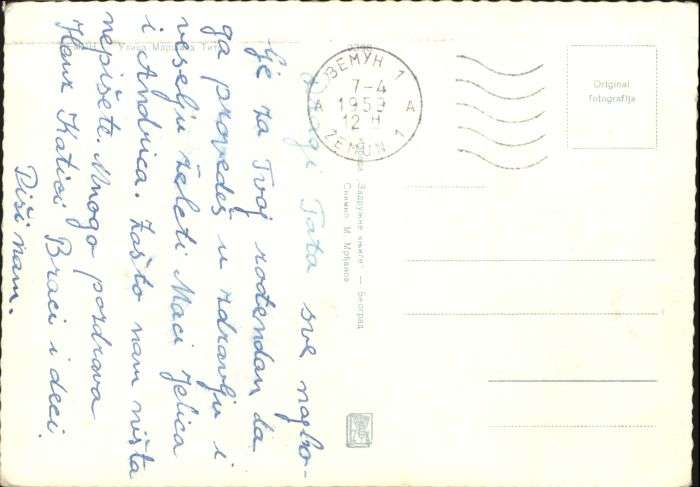 Dragi Tata sve najbo-
lje za Tvoj rođendan da
ga provedeš u zdravlju i
veselju želeti Maci Jelica
i Andrica. Zašto nam ništa
nepišete. Mnogo pozdrava
Katici Braci i deci.
Piši nam.
Улица Маршала Тита
ЗЕМУН 1
7-4
1959
12 H
A A
ZEMUN 1
"Задружне књиге" — Београд
Снимио М. Мрђанов
Original
fotografija